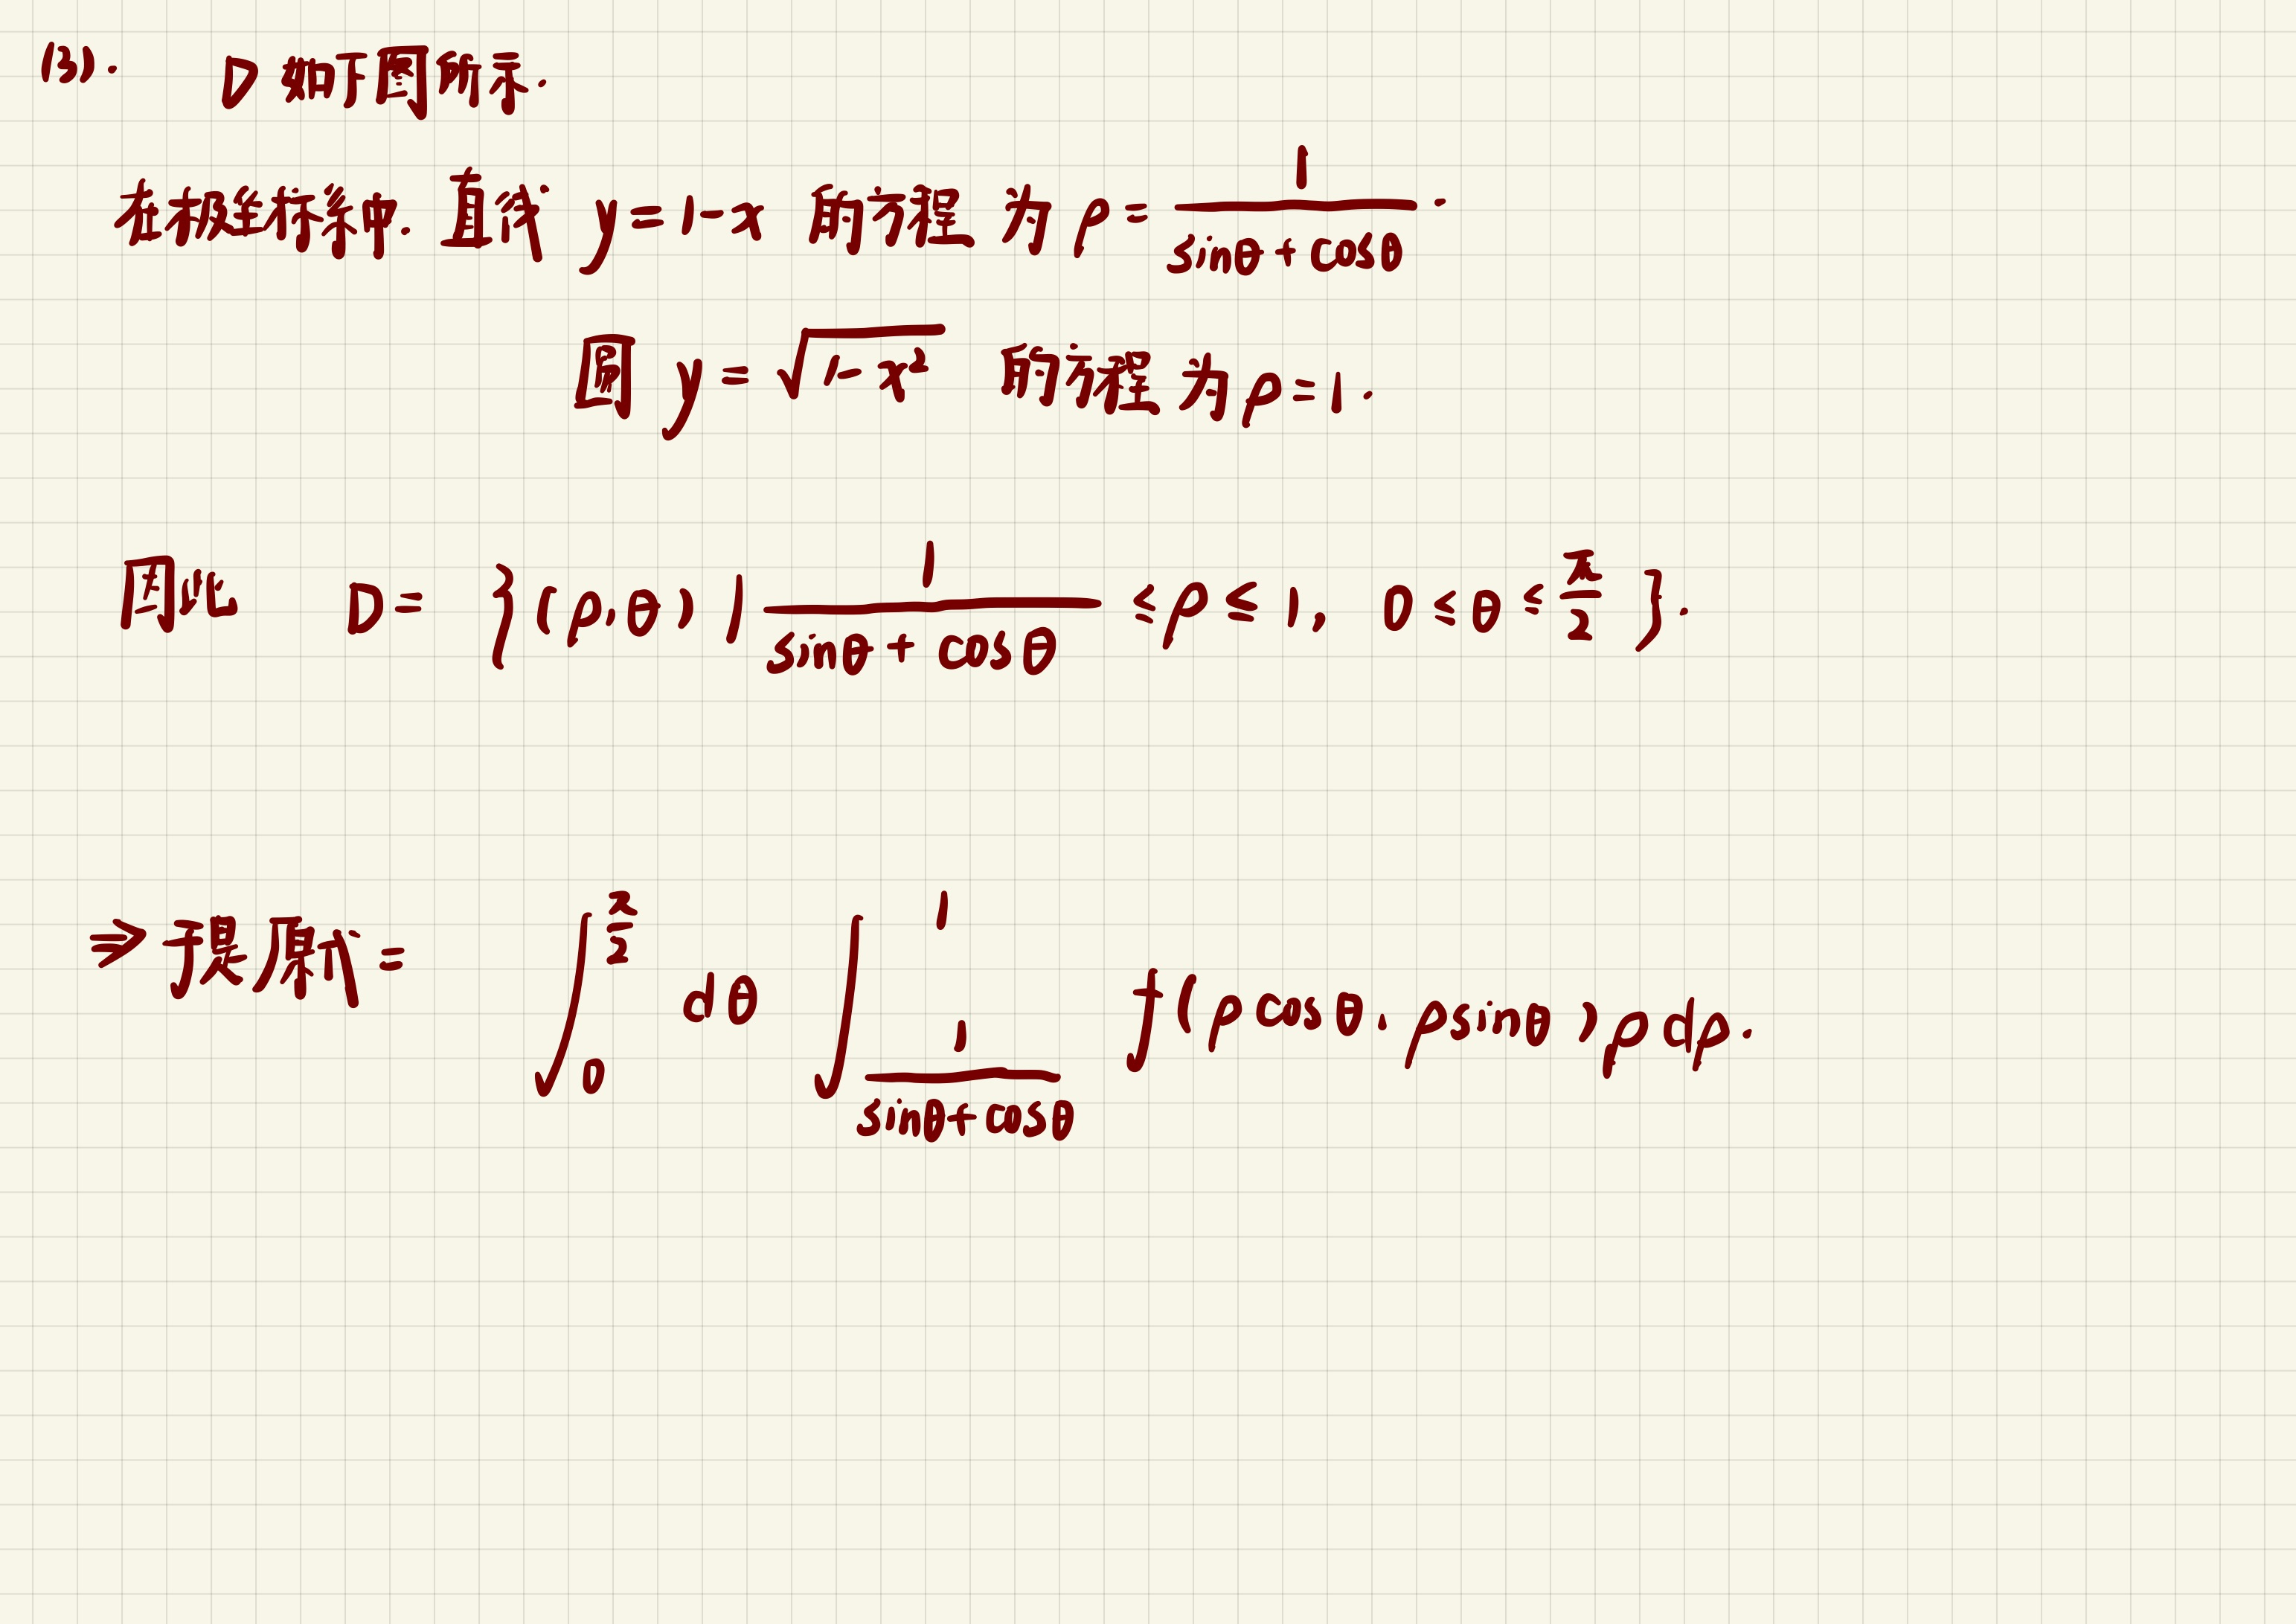 (3). D 如下图所示.
在极坐标系中. 直线 y=1-x 的方程为 ρ=\frac{1}{sinθ+cosθ}.
圆 y=\sqrt{1-x^2} 的方程为 ρ=1.
因此 D={(ρ,θ)|\frac{1}{sinθ+cosθ}≤ρ≤1, 0≤θ≤\frac{π}{2}}.
⇒ 于是原式=\int_0^{\frac{π}{2}} dθ \int_{\frac{1}{sinθ+cosθ}}^{1} f(ρcosθ, ρsinθ)ρdρ.